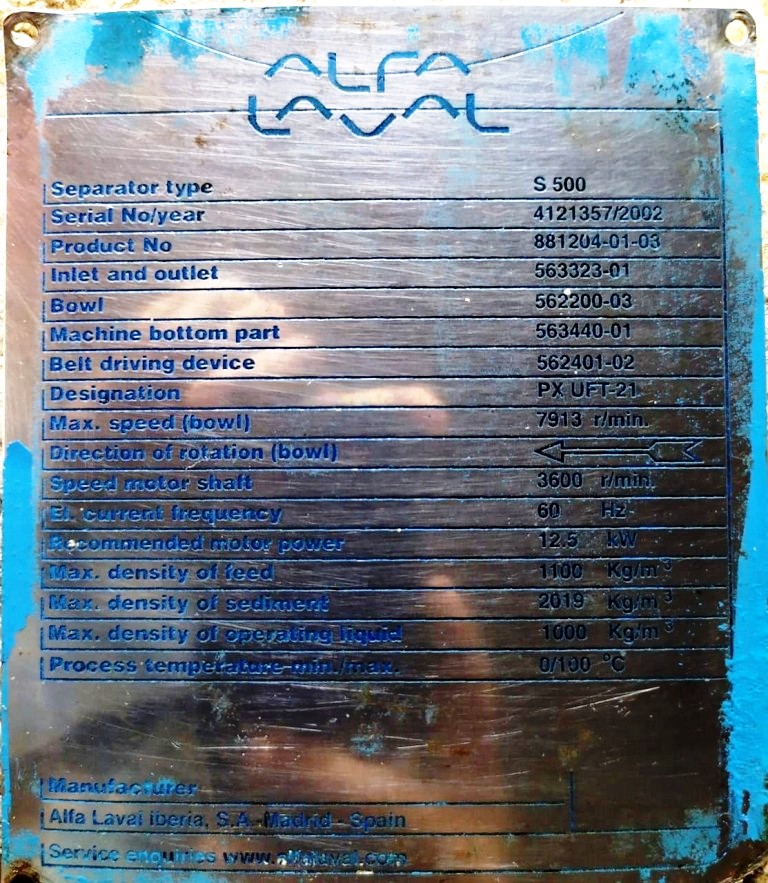 ALFA
LAVAL
Separator type S 500
Serial No/year 4121357/2002
Product No 881204-01-03
Inlet and outlet 563323-01
Bowl 562200-03
Machine bottom part 563440-01
Belt driving device 562401-02
Designation PX UFT-21
Max. speed (bowl) 7913 r/min.
Direction of rotation (bowl)
Speed motor shaft 3600 r/min.
El. current frequency 60 Hz
Recommended motor power 12.5 kW
Max. density of feed 1100 Kg/m³
Max. density of sediment 2019 Kg/m³
Max. density of operating liquid 1000 Kg/m³
Process temperature min./max. 0/100 °C
Manufacturer
Alfa Laval Iberia, S.A. Madrid - Spain
Service enquiries www.alfalaval.com